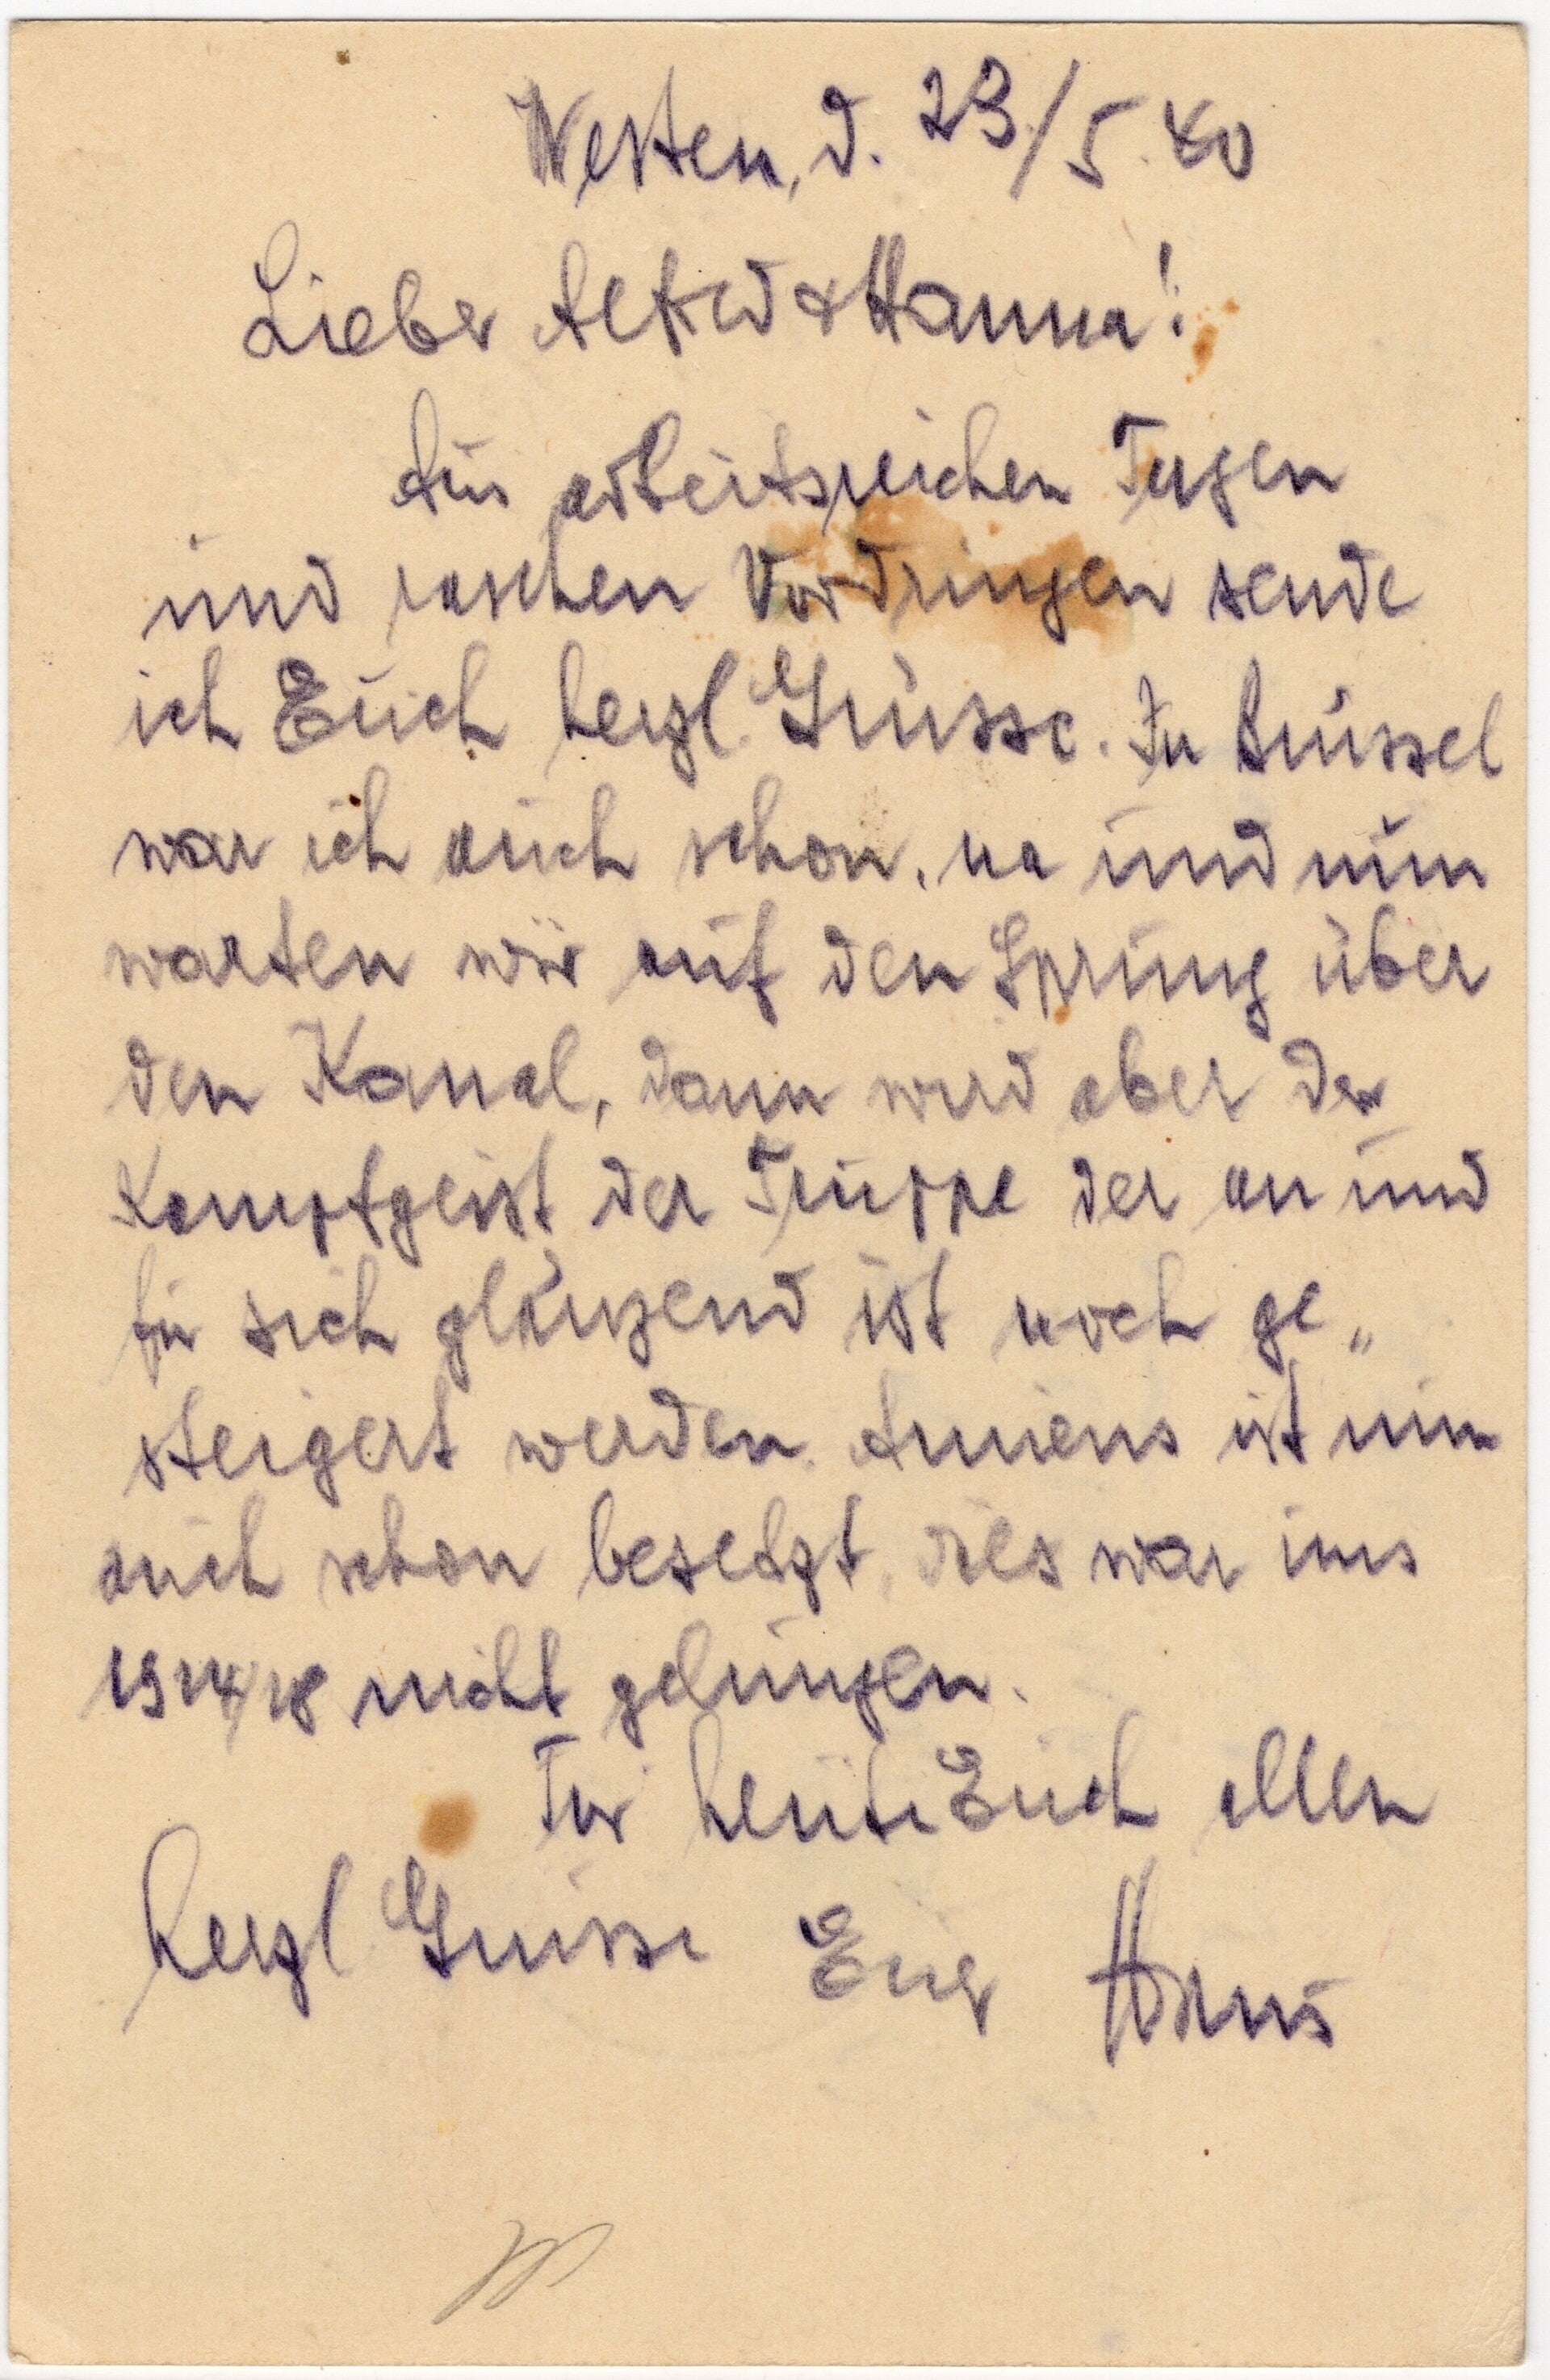 Westen, d. 23/5.40
Lieber Alfred & Hanna!
Aus arbeitsreichen Tagen
und raschen Vordringen sende
ich Euch herzl. Grüsse. In Brüssel
war ich auch schon, na und nun
warten wir auf den Sprung über
den Kanal, dann wird aber der
Kampfgeist der Truppe der an und
für sich glänzend ist noch ge„
steigert werden. Amiens ist nun
auch schon besetzt, dies war uns
1914/18 nicht gelungen.
Für heute Euch allen
herzl Grüsse Euer Hans